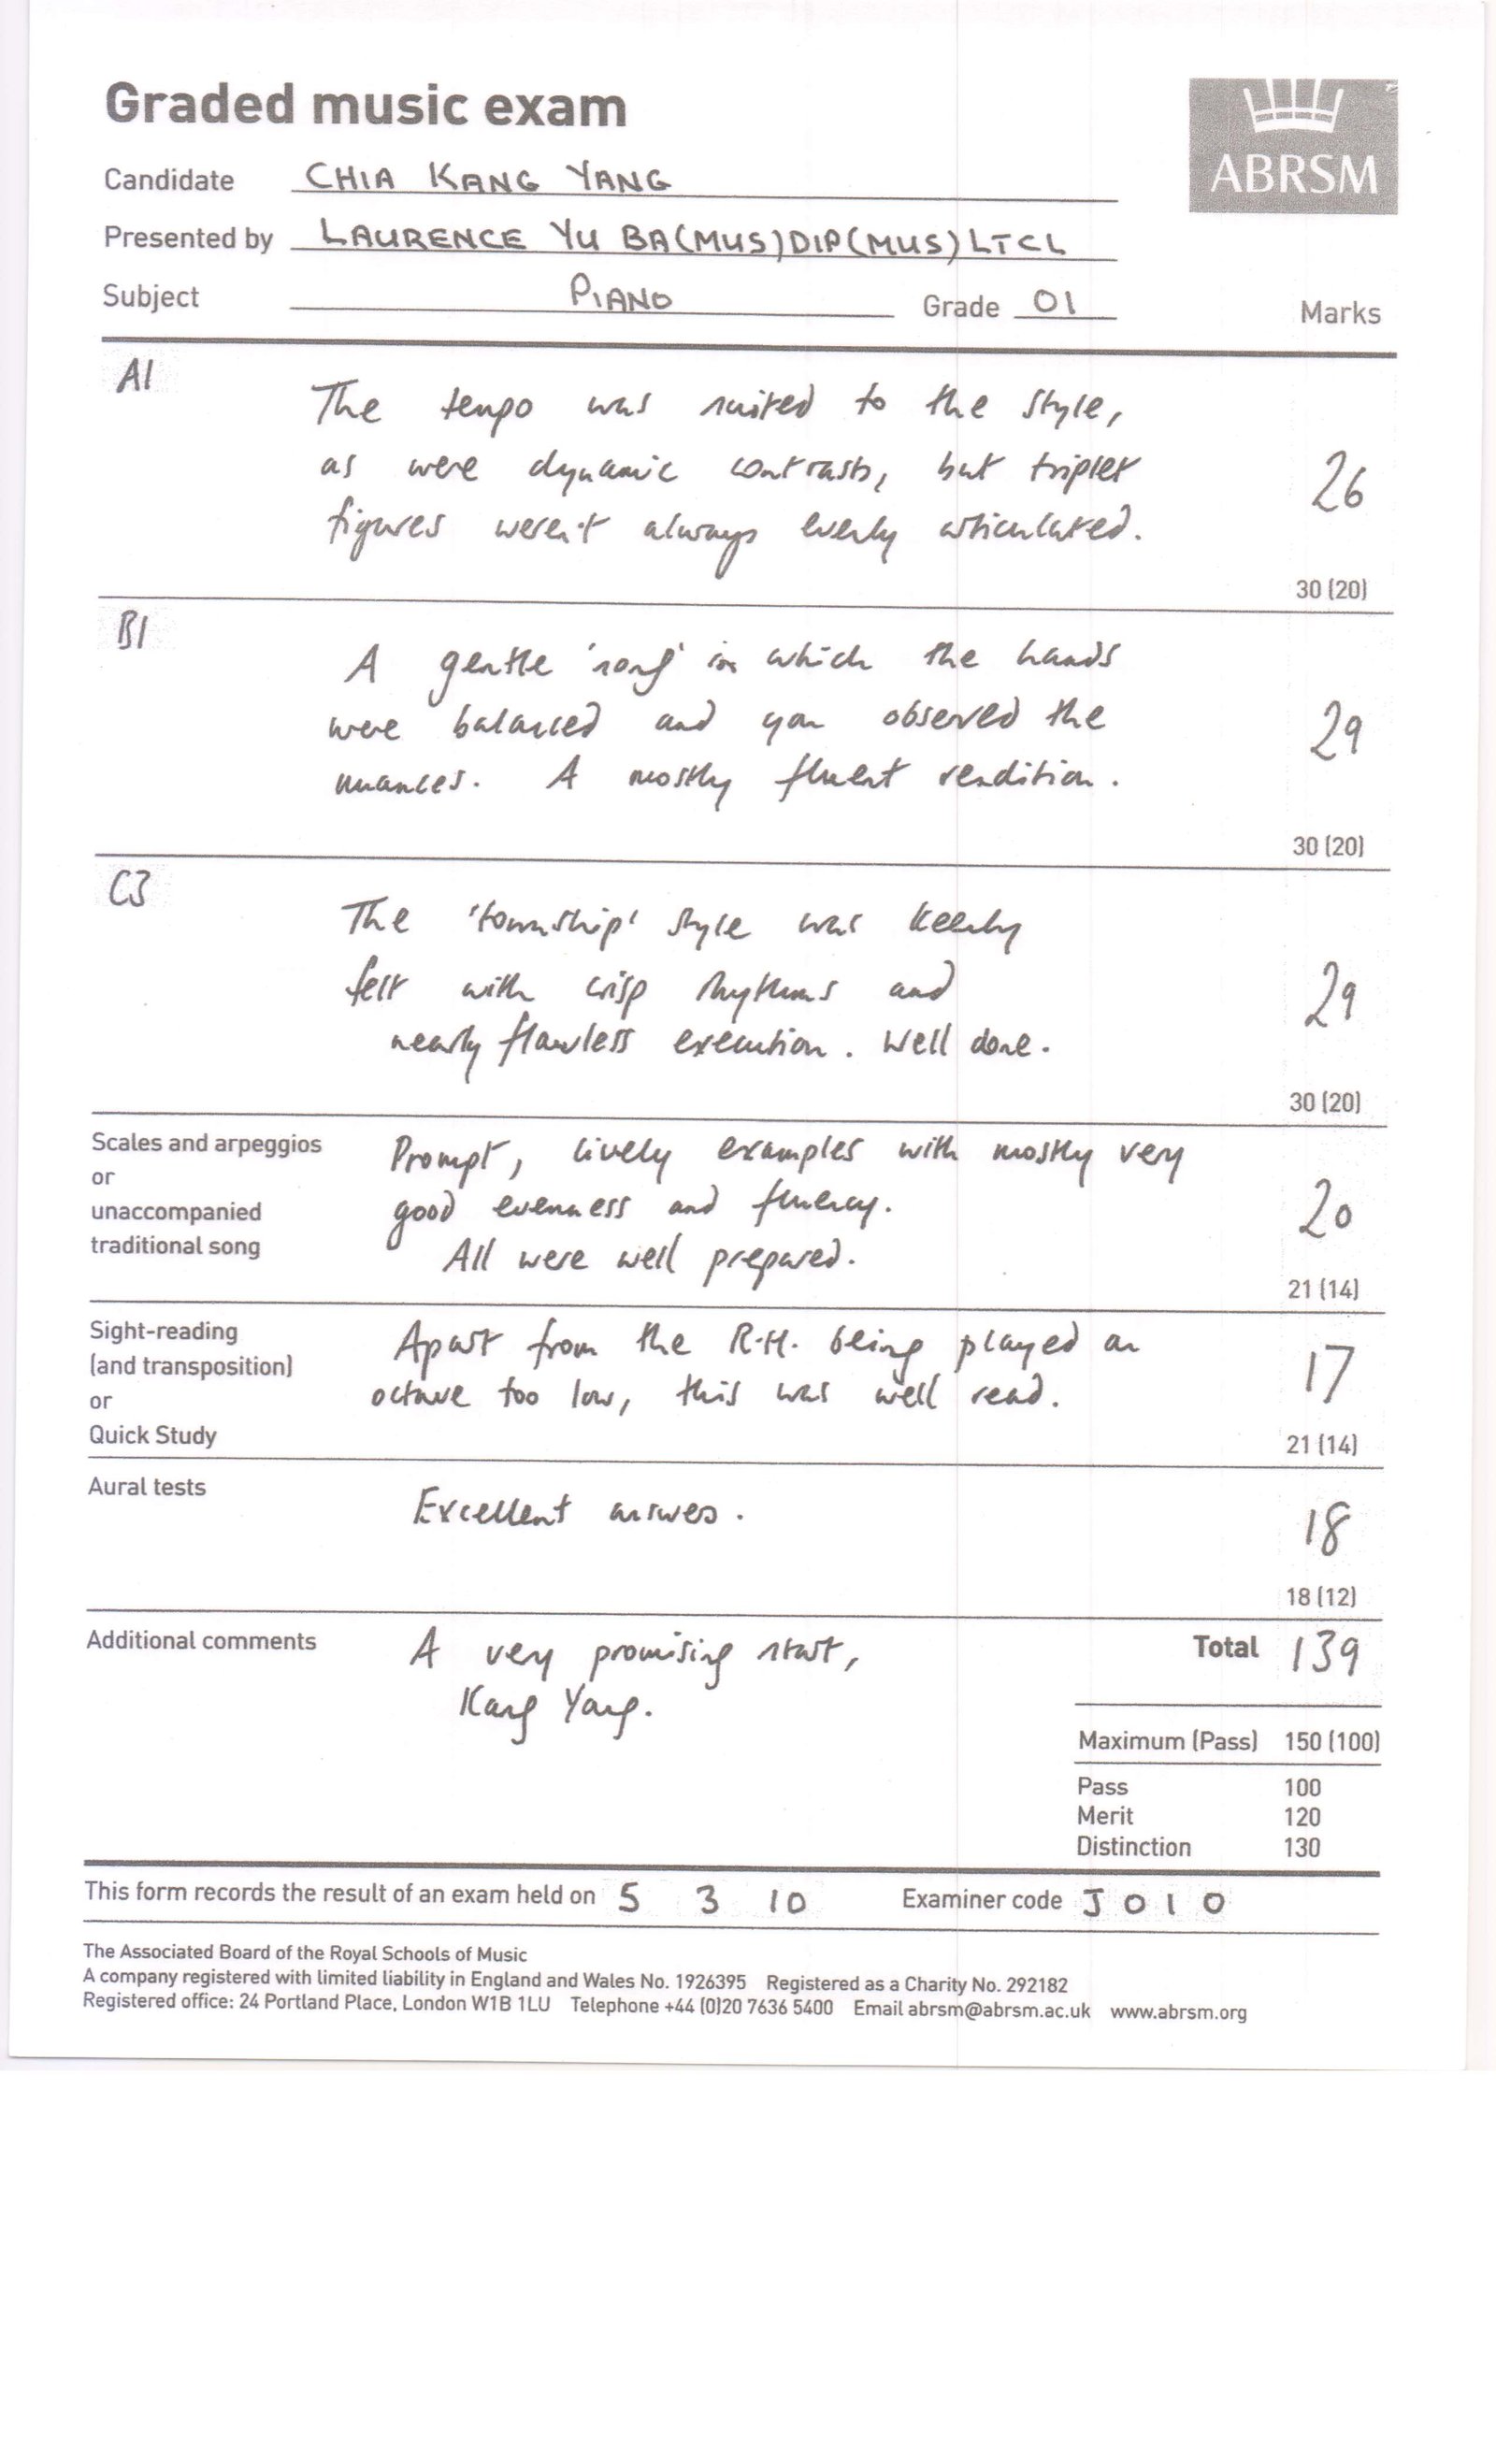 Graded music exam
ABRSM
Candidate CHIA KANG YANG
Presented by LAURENCE YU BA(MUS)DIP(MUS)LTCL
Subject PIANO Grade 01 Marks
A1
The tempo was suited to the style,
as were dynamic contrasts, but triplet
figures weren't always evenly articulated.
26
30 (20)
B1
A gentle 'song' in which the hands
were balanced and you observed the
nuances. A mostly fluent rendition.
29
30 (20)
C3
The 'township' style was keenly
felt with crisp rhythms and
nearly flawless execution. Well done.
29
30 (20)
Scales and arpeggios
or
unaccompanied
traditional song
Prompt, lively examples with mostly very
good evenness and fluency.
All were well prepared.
20
21 (14)
Sight-reading
(and transposition)
or
Quick Study
Apart from the R.H. being played an
octave too low, this was well read.
17
21 (14)
Aural tests
Excellent answers.
18
18 (12)
Additional comments
A very promising start,
Kang Yang.
Total 139
Maximum (Pass) 150 (100)
Pass 100
Merit 120
Distinction 130
This form records the result of an exam held on 5 3 10 Examiner code J010
The Associated Board of the Royal Schools of Music
A company registered with limited liability in England and Wales No. 1926395 Registered as a Charity No. 292182
Registered office: 24 Portland Place, London W1B 1LU Telephone +44 (0)20 7636 5400 Email abrsm@abrsm.ac.uk www.abrsm.org